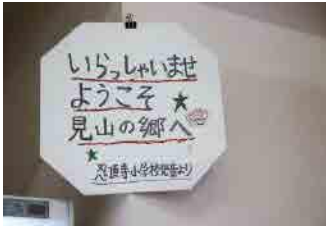 いらっしゃいませ
ようこそ
見山の郷へ
忍頂寺小学校児童より